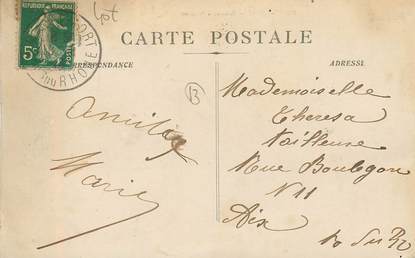 Lot
REPUBLIQUE FRANÇAISE
5c
ORT
du RHONE
CARTE POSTALE
CORRESPONDANCE
ADRESSE
13
Amitiés
Marie
Mademoiselle
Theresa
tailleuse
Rue Boulegon
N 11
Aix